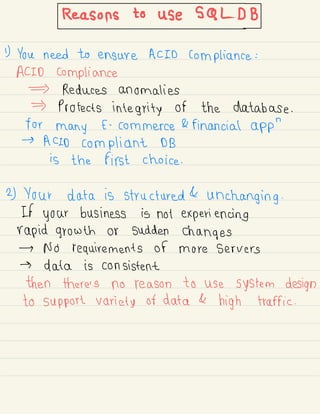 Reasons to use SQL DB
1) You need to ensure ACID Compliance:
ACID Compliance
⇒ Reduces anomalies
⇒ Protects integrity of the database.
for many E-commerce & financial appⁿ
→ ACID Compliant DB
is the first choice.
2) Your data is structured & unchanging.
If your business is not experiencing
rapid growth or sudden changes
→ No requirements of more Servers
→ data is consistent
then there's no reason to use system design
to support variety of data & high traffic.